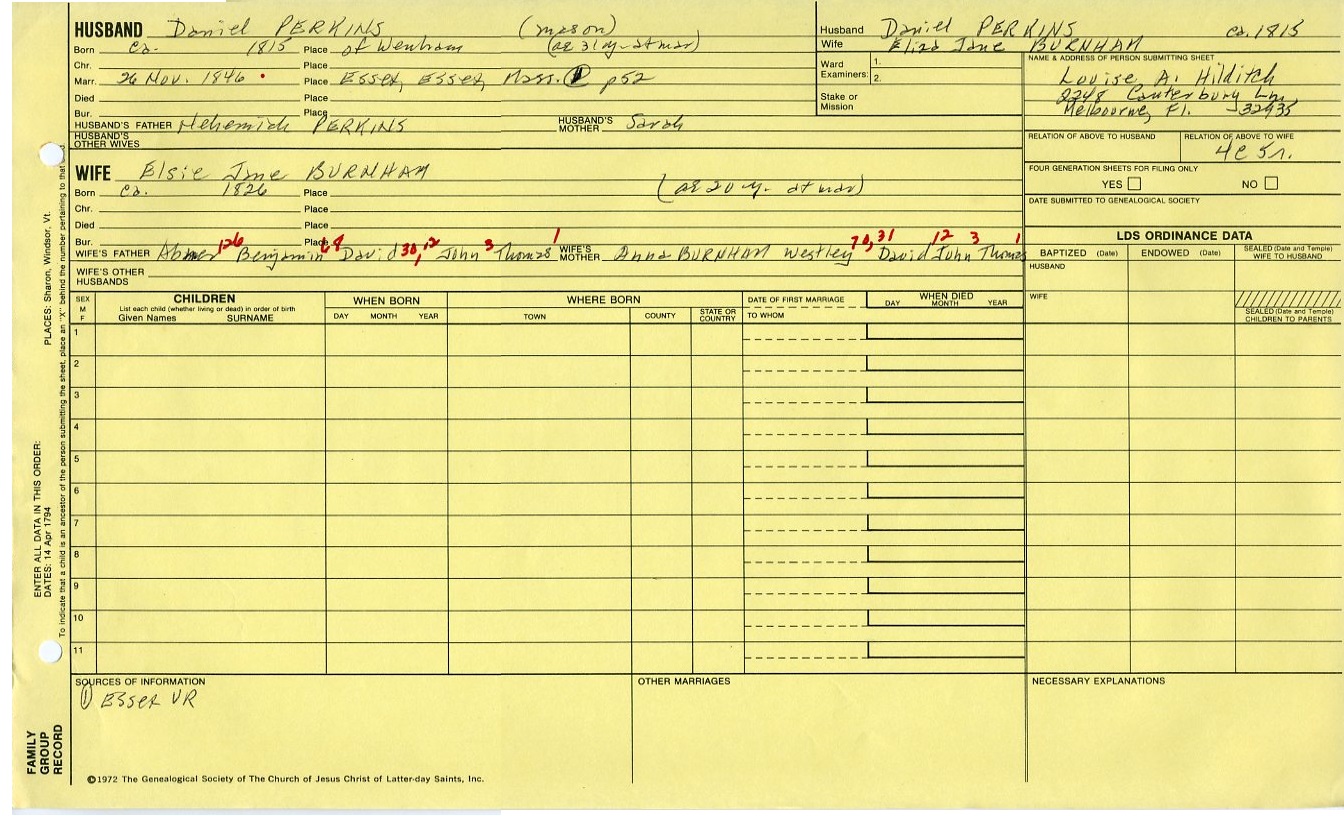 HUSBAND Daniel PERKINS (mason)
Born ca. 1815 Place of Wenham (ae 31 y. at mar)
Chr. Place
Marr. 26 Nov. 1846 Place Essex, Essex, Mass. ① p52
Died Place
Bur. Place
HUSBAND'S FATHER Nehemiah PERKINS HUSBAND'S MOTHER Sarah
HUSBAND'S OTHER WIVES
Husband Daniel PERKINS ca. 1815
Wife Eliza Jane BURNHAM
Ward Examiners: 1.
2.
Stake or Mission
NAME & ADDRESS OF PERSON SUBMITTING SHEET
Louise A. Hilditch
2248 Canterbury Ln
Melbourne, Fl. 32935
RELATION OF ABOVE TO HUSBAND RELATION OF ABOVE TO WIFE
4c 5r.
FOUR GENERATION SHEETS FOR FILING ONLY
YES NO
DATE SUBMITTED TO GENEALOGICAL SOCIETY
WIFE Elsie Jane BURNHAM
Born ca. 1826 Place (ae 20 y. at mar)
Chr. Place
Died Place
Bur. Place
WIFE'S FATHER Abner 126 Benjamin 68 David 30, 12 John 3 Thomas 1 WIFE'S MOTHER Anna BURNHAM Westley 70, 31 David 12 John 3 Thomas 1
WIFE'S OTHER HUSBANDS
LDS ORDINANCE DATA
BAPTIZED (Date) ENDOWED (Date) SEALED (Date and Temple) WIFE TO HUSBAND
HUSBAND
WIFE
SEALED (Date and Temple) CHILDREN TO PARENTS
SEX M F
CHILDREN
List each child (whether living or dead) in order of birth
Given Names SURNAME
WHEN BORN
DAY MONTH YEAR
WHERE BORN
TOWN COUNTY STATE OR COUNTRY
DATE OF FIRST MARRIAGE
TO WHOM
WHEN DIED
DAY MONTH YEAR
1
2
3
4
5
6
7
8
9
10
11
SOURCES OF INFORMATION
① Essex VR
OTHER MARRIAGES
NECESSARY EXPLANATIONS
©1972 The Genealogical Society of The Church of Jesus Christ of Latter-day Saints, Inc.
FAMILY GROUP RECORD
ENTER ALL DATA IN THIS ORDER:
DATES: 14 Apr 1794
PLACES: Sharon, Windsor, Vt.
To indicate that a child is an ancestor of the person submitting the sheet, place an "X" behind the number pertaining to that